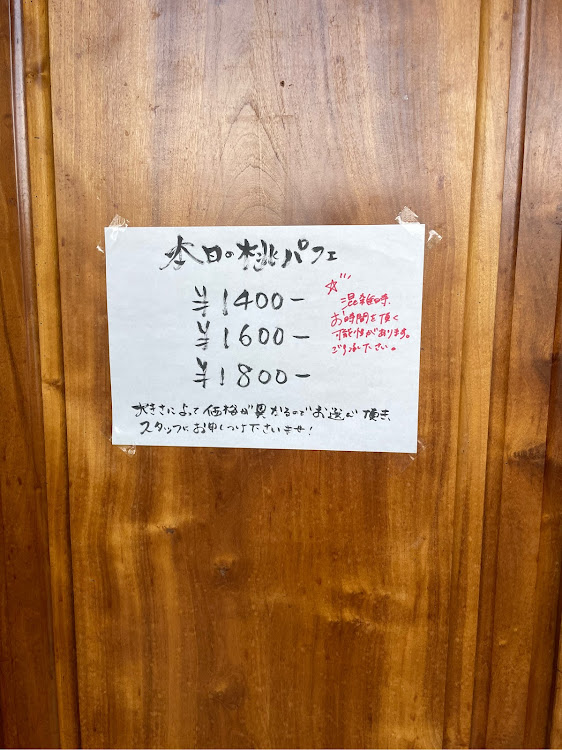 本日の桃パフェ
¥1400-
¥1600-
¥1800-
☆混雑時、
お時間を頂く
可能性があります。
ご了承下さい。
大きさによって価格が異なるのでお選び頂き、
スタッフにお申しつけ下さいませ!